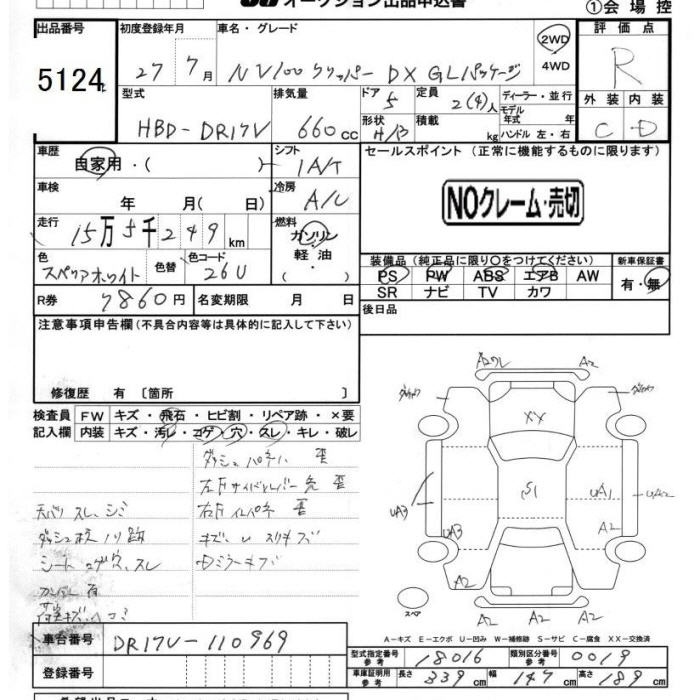 オークション出品申込書
①会場控
出品番号 5124
初度登録年月 27 7月
車名・グレード NV100クリッパー DX GLパッケージ
2WD
4WD
評価点 R
外装 C 内装 D
型式 HBD-DR17V
排気量 660cc
ドア 5 形状 H/B
定員 2(4)人
積載 kg
ディーラー・並行
モデル年式 年式
ハンドル 左・右
車歴 自家用・( )
シフト 1A/T
車検 年 月(日)
冷房 A/C
走行 15万5千249km
燃料 ガソリン
軽油・
( )
色 スペリアホワイト
色替
色コード 26U
R券 7860円
名変期限 月 日
セールスポイント (正常に機能するものに限ります)
NOクレーム・売切
装備品(純正品に限り〇をつけてください)
PS PW ABS エアB AW
SR ナビ TV カワ
新車保証書
有・無
後日品
注意事項申告欄(不具合内容等は具体的に記入して下さい)
修復歴 有〔箇所 〕
検査員 FW キズ・飛石・ヒビ割・リペア跡・×要
記入欄 内装 キズ・汚レ・コゲ・穴・スレ・キレ・破レ
ダッシュパネル 歪
天バリ スレ、シミ
シート コゲ穴、スレ
A2
XX
S1
UA3
UA3
UA1
UA2
A2
A2
A2
A2
A2
スペア
A-キズ E-エクボ U-凹み W-補修跡 S-サビ C-腐食 XX-交換済
車台番号 DR17V-110969
登録番号
型式指定番号 参考 18016
類別区分番号 参考 0019
車庫証明用 参考 長さ 339cm 幅 147cm 高さ 189cm